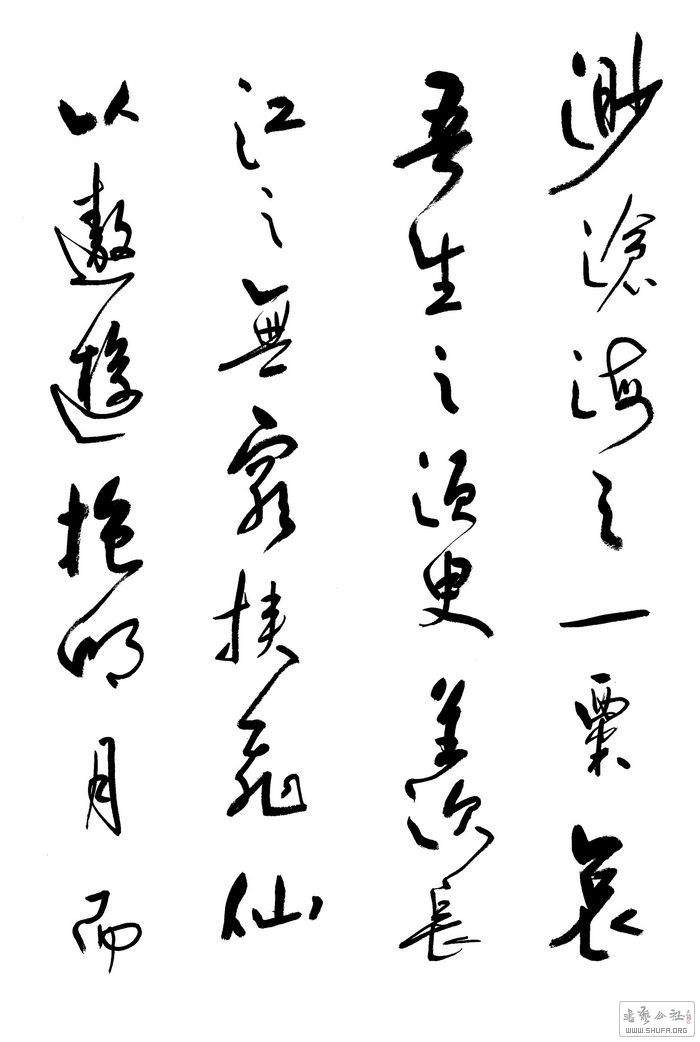 渺滄海之一粟哀
吾生之須臾羨長
江之無窮挾飛仙
以遨遊抱明月而
書藝公社
WWW.SHUFA.ORG